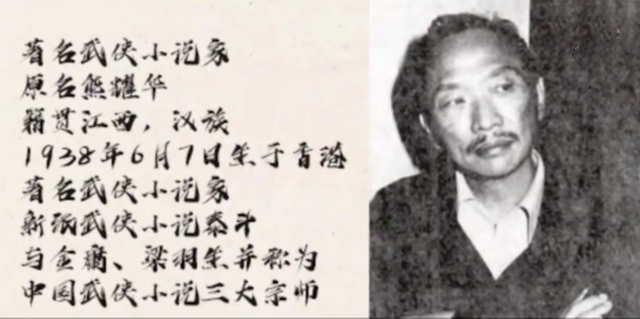 著名武侠小说家
原名熊耀华
籍贯江西，汉族
1938年6月7日生于香港
著名武侠小说家
新派武侠小说泰斗
与金庸、梁羽生并称为
中国武侠小说三大宗师